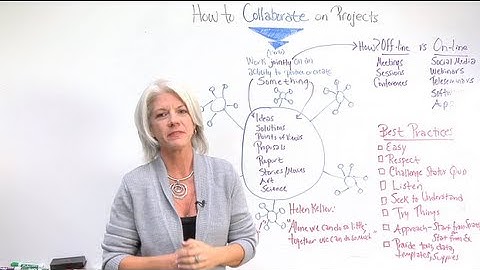 How to Collaborate on Projects
Work jointly on an
activity to produce or create
Something
How? Off-line vs On-line
Meetings
Sessions
Conferences
Social Media
Webinars
Teleseminars
Ideas
Solutions
Points of Views
Proposals
Report
Stories/Music
Art
Science
Helen Keller:
"Alone we can do so little,
together we can do so much"
Best Practices
Easy
Respect
Challenge Status Quo
Listen
Seek to Understand
Try Things
Approach - Start from
Start from
Provide tools, data,
templates, supplies